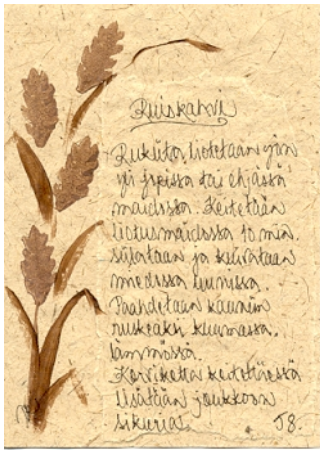 Ruiskahvi
Rukiita liotetaan yön
yli              tai ehjässä
maidossa. Keitetään
liotusmaidossa 10 min.
            ja kuivataan
miedossa uunissa.
Paahdetaan kauniin
ruskeaksi kuumassa
lämmössä.
Korviketta keitettäessä
lisätään joukkoon
sikuria.